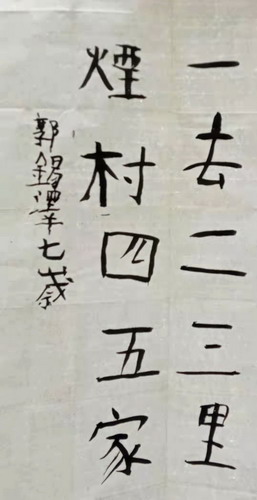 一去二三里
煙村四五家
郭錫澤七歲